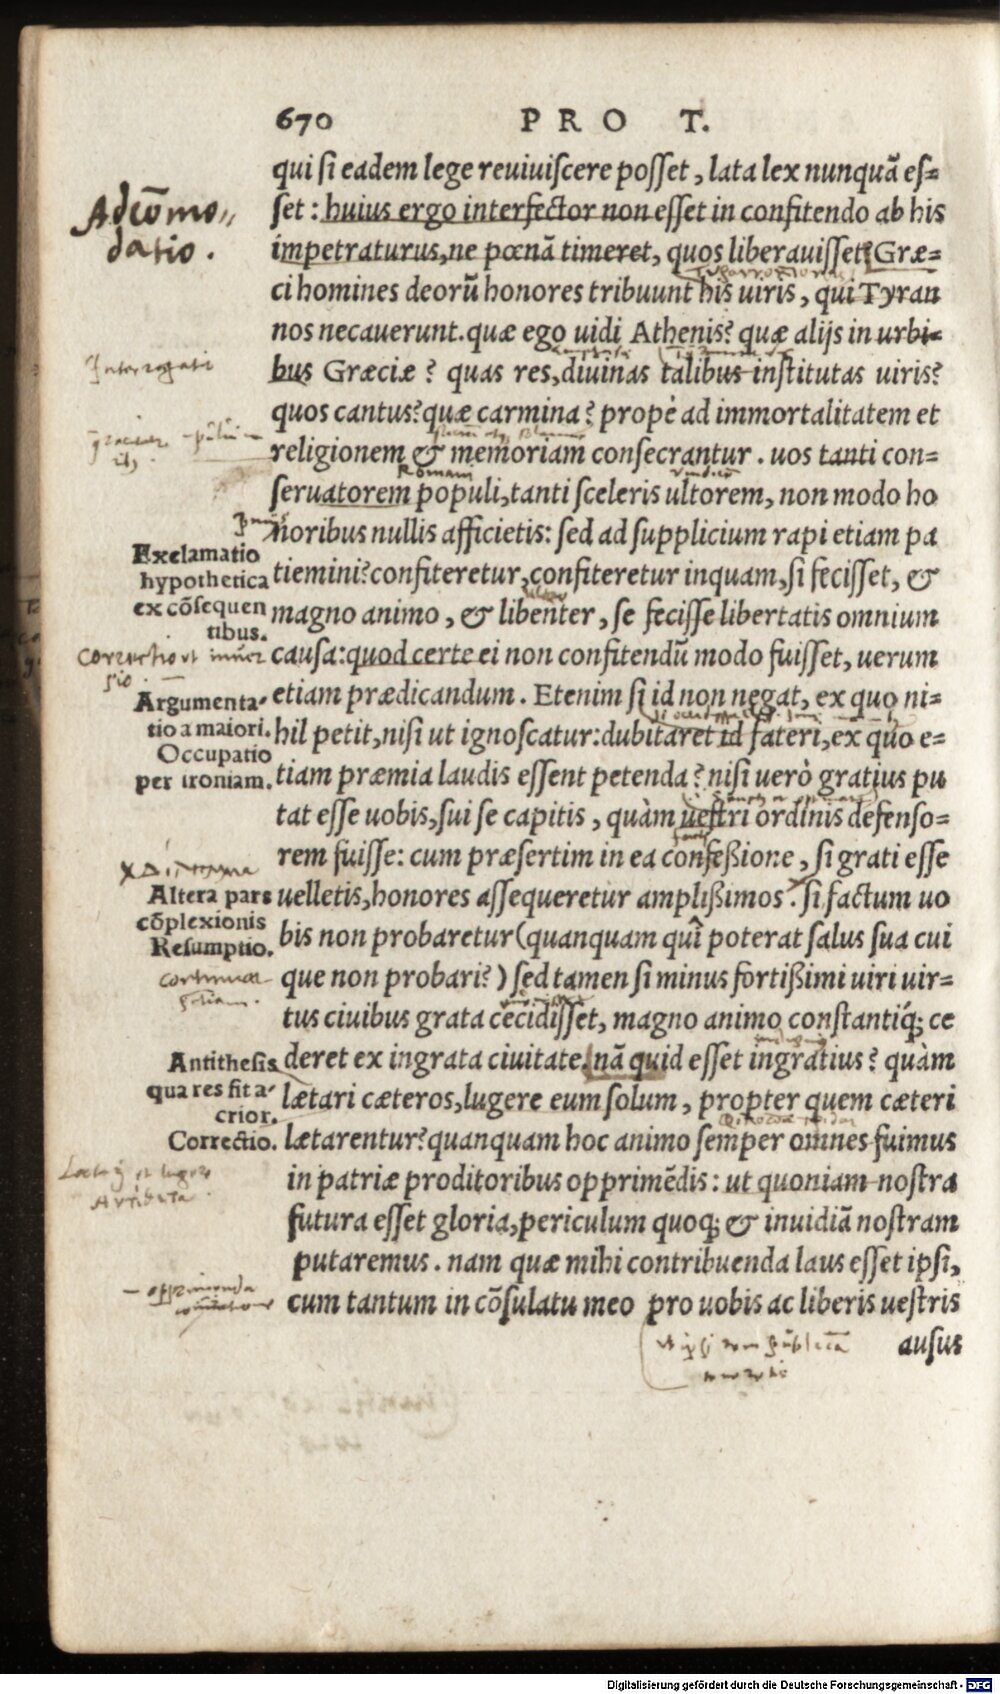 670 PRO T.
qui ſi eadem lege reuiuiſcere poſſet, lata lex nunquã eſ=
ſet: huius ergo interfector non eſſet in confitendo ab his
Adcõmo„
datio.
impetraturus, ne pœnã timeret, quos liberauiſſet? Græ=
ci homines deorũ honores tribuunt his uiris, qui Tyran
nos necauerunt. quæ ego uidi Athenis? quæ alijs in urbi=
Interrogati
bus Græciæ? quas res, diuinas talibus inſtitutas uiris?
quos cantus? quæ carmina? propè ad immortalitatem et
religionem & memoriam conſecrantur. uos tanti con=
Romani
ſeruatorem populi, tanti ſceleris ultorem, non modo ho
noribus nullis afficietis: ſed ad ſupplicium rapi etiam pa
Exclamatio
hypothetica
ex cõſequen
tibus.
tiemini? confiteretur, confiteretur inquam, ſi feciſſet, &
magno animo, & libenter, ſe feciſſe libertatis omnium
cauſa: quod certe ei non confitendũ modo fuiſſet, uerum
Correctio
etiam prædicandum. Etenim ſi id non negat, ex quo ni=
Argumenta-
tio a maiori.
Occupatio
per ironiam.
hil petit, niſi ut ignoſcatur: dubitaret id fateri, ex quo e=
tiam præmia laudis eſſent petenda? niſi uerò gratius pu
tat eſſe uobis, ſui ſe capitis, quàm ueſtri ordinis defenſo=
rem fuiſſe: cum præſertim in ea confeßione, ſi grati eſſe
Altera pars
cõplexionis
Reſumptio.
uelletis, honores aſſequeretur amplißimos. ſi factum uo
bis non probaretur (quanquam quî poterat ſalus ſua cui
que non probari?) ſed tamen ſi minus fortißimi uiri uir=
tus ciuibus grata cecidiſſet, magno animo conſtantiq́; ce
Antitheſis
qua res fit a-
crior.
deret ex ingrata ciuitate. nã quid eſſet ingratius? quàm
lætari cæteros, lugere eum ſolum, propter quem cæteri
Correctio.
lætarentur? quanquam hoc animo ſemper omnes fuimus
in patriæ proditoribus opprimẽdis: ut quoniam noſtra
futura eſſet gloria, periculum quoq; & inuidiã noſtram
putaremus. nam quæ mihi contribuenda laus eſſet ipſi,
cum tantum in cõſulatu meo pro uobis ac liberis ueſtris
auſus
Digitalisierung gefördert durch die Deutsche Forschungsgemeinschaft - DFG